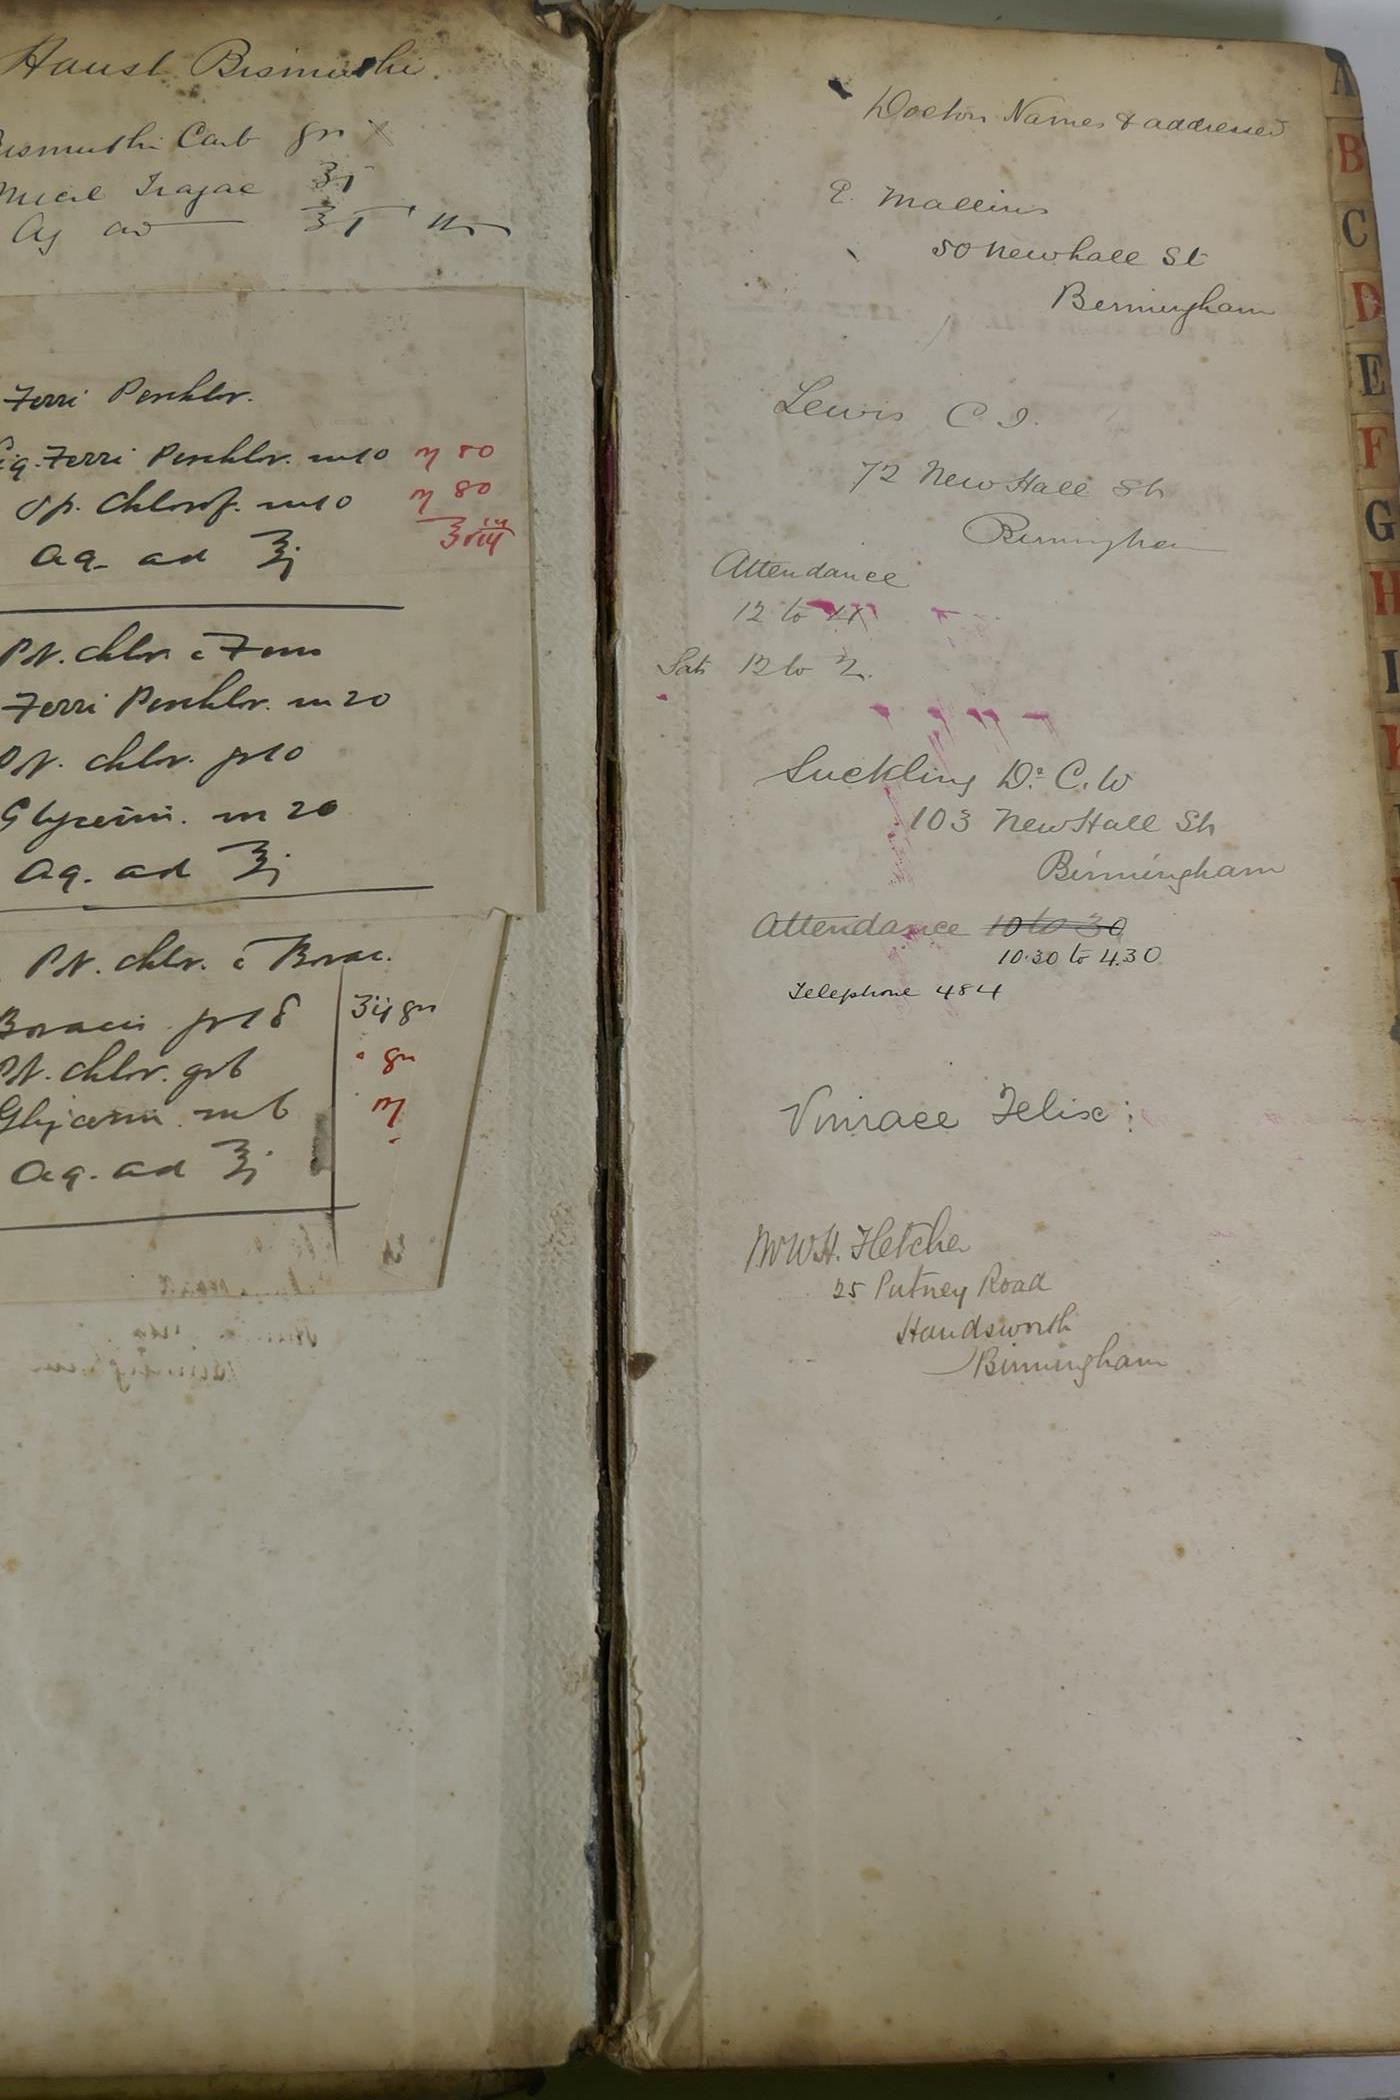 Haust Bismuthi.
Bismuthi Carb gr X
Mucil Tragac ʒj
Aq ad ℥j
Ferri Perchlor.
Liq. Ferri Perchlor. m10 m 80
Sp. Chlorof. m10 m 80
Aq. ad ℥j ℥viii
Pot. chlor. c̄ Ferri
Ferri Perchlor. m 20
Pot. chlor. gr10
Glycerin. m 20
Aq. ad ℥j
Pot. chlor. c̄ Borac.
Boracis gr18 ʒij gr
Pot. chlor. gr6 gr
Glycerin. m6 m
Aq. ad ℥j
Doctors Names & addresses
P. Mallins
50 Newhall St
Birmingham
Lewis C. J.
72 New Hall St
Birmingham
Attendance
12 to
Sats 12 to 2.
Suckling Dr. C. W
103 New Hall St
Birmingham
Attendance 10 to 30
10.30 to 4.30
Telephone 484
Vinrace Felix:
Mr W. H. Fletcher
25 Putney Road
Handsworth
Birmingham
A
B
C
D
E
F
G
H
I
K